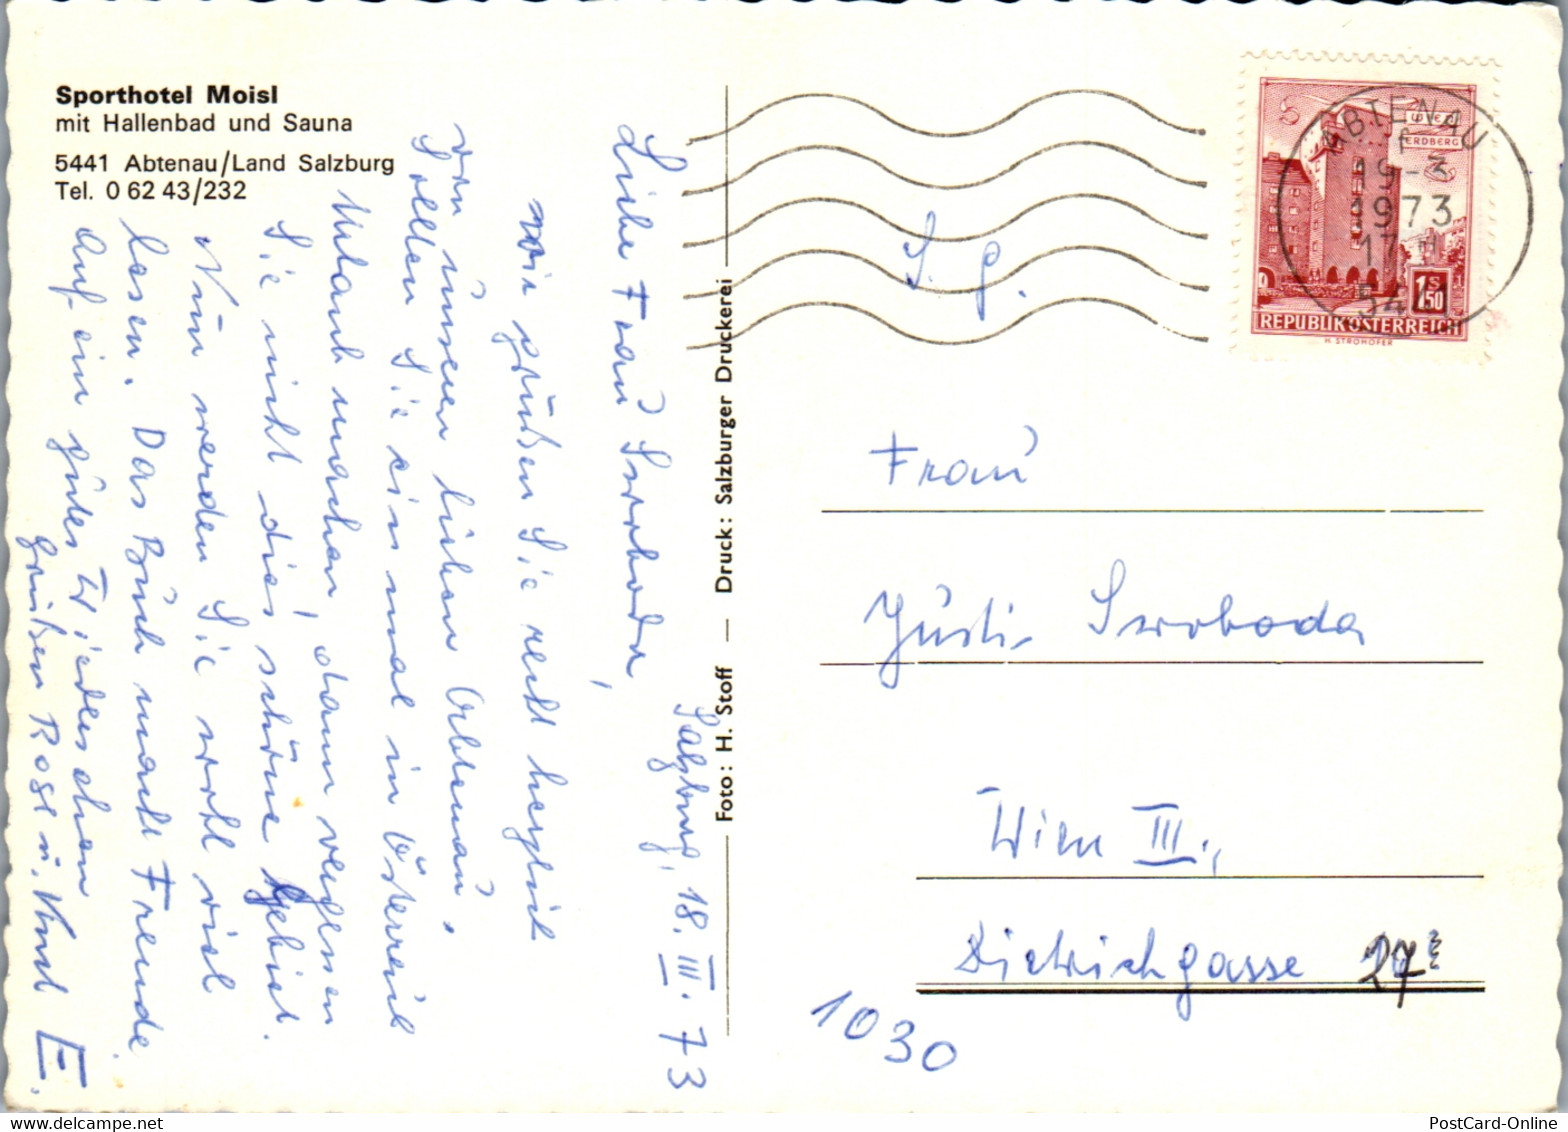 Sporthotel Moisl
mit Hallenbad und Sauna
5441 Abtenau/Land Salzburg
Tel. 0 62 43/232
Salzburg, 18. III. 73
Liebe Frau Swoboda,
wir grüßen Sie recht herzlich
von unsern lieben Abtenau,
Sollten Sie einmal in Österreich
Urlaub machen, dann vergessen
Sie nicht dies schöne Gebiet.
Nun werden Sie wohl viel
lesen. Das Buch macht Freude.
Auf ein gutes Wiedersehen
grüßen Rosl u. Knut E.
Foto: H. Stoff — Druck: Salzburger Druckerei
S. g.
ABTENAU
19-3
1973
17
54
WIEN
ERDBERG
1.50
S
REPUBLIK ÖSTERREICH
H. STROHOFER
Frau
Justi Swoboda
Wien III.,
Dietrichgasse 27
1030
PostCard-Online